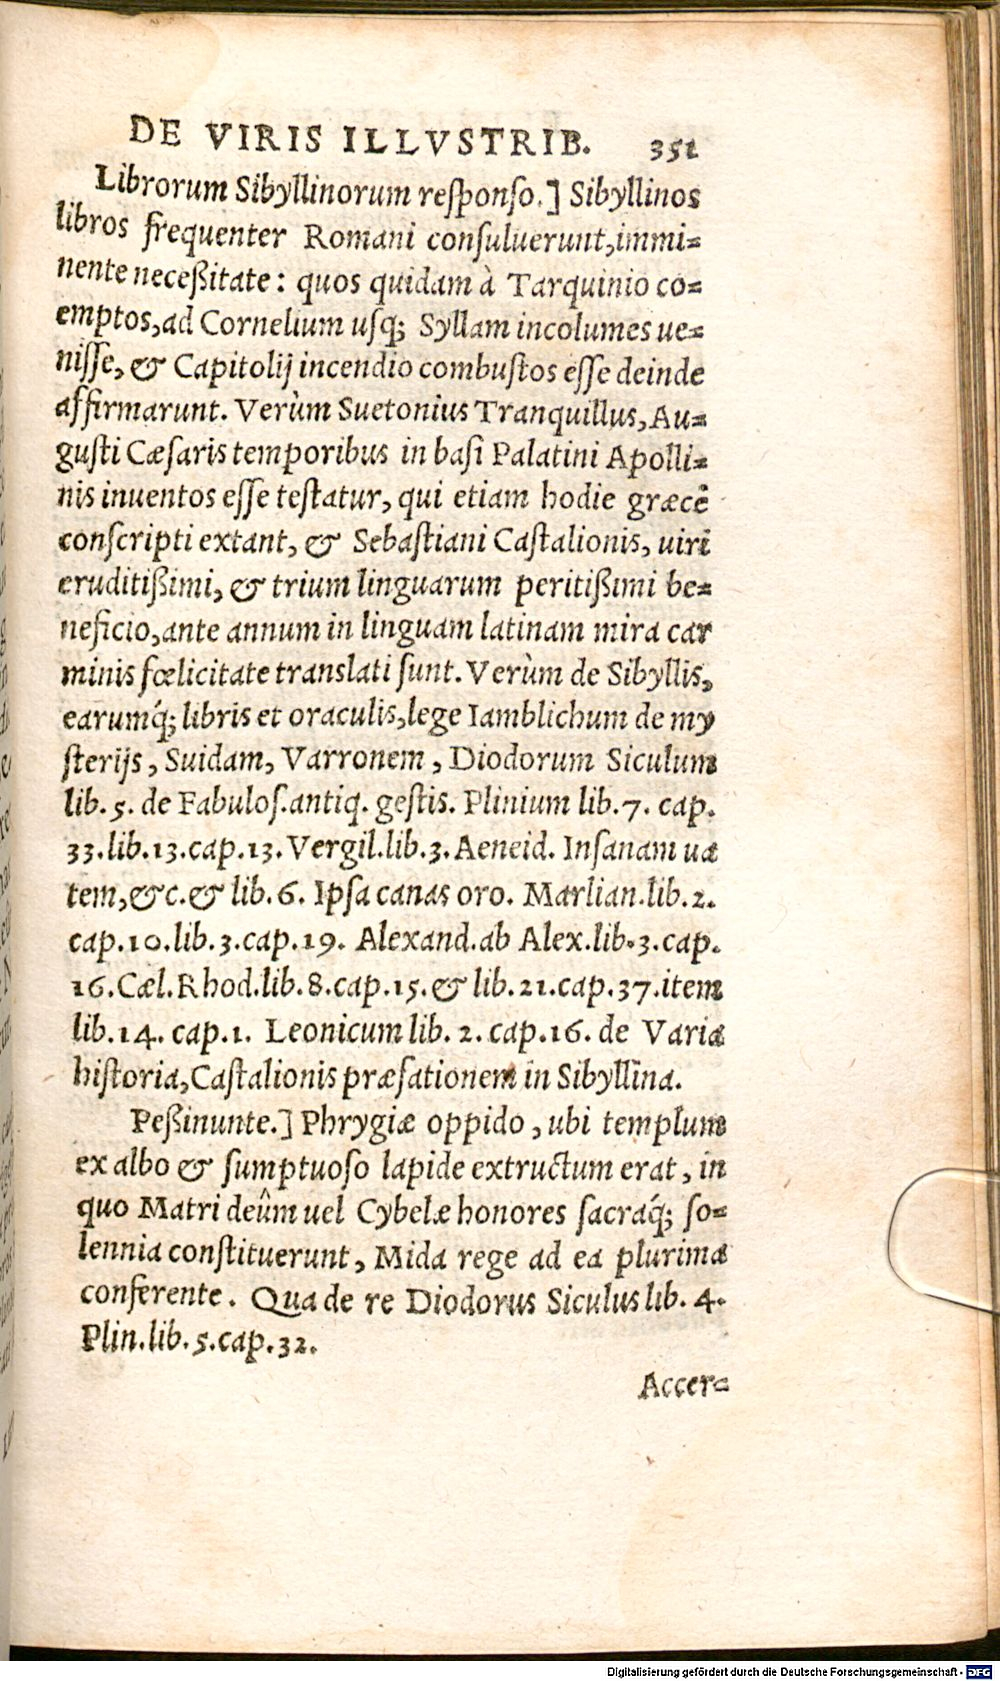 DE VIRIS ILLVSTRIB. 351
Librorum Sibyllinorum responso.] Sibyllinos
libros frequenter Romani consuluerunt, immi=
nente neceßitate: quos quidam à Tarquinio co=
emptos, ad Cornelium usq; Syllam incolumes ue=
nisse, & Capitolij incendio combustos esse deinde
affirmarunt. Verùm Suetonius Tranquillus, Au=
gusti Cæsaris temporibus in basi Palatini Apolli=
nis inuentos esse testatur, qui etiam hodie græcè
conscripti extant, & Sebastiani Castalionis, uiri
eruditißimi, & trium linguarum peritißimi be=
neficio, ante annum in linguam latinam mira car
minis fœlicitate translati sunt. Verùm de Sibyllis,
earumq́; libris et oraculis, lege Iamblichum de my
sterijs, Suidam, Varronem, Diodorum Siculum
lib. 5. de Fabulos. antiq. gestis. Plinium lib. 7. cap.
33. lib. 13. cap. 13. Vergil. lib. 3. Aeneid. Insanam ua
tem, &c. & lib. 6. Ipsa canas oro. Marlian. lib. 2.
cap. 10. lib. 3. cap. 19. Alexand. ab Alex. lib. 3. cap.
16. Cæl. Rhod. lib. 8. cap. 15. & lib. 21. cap. 37. item
lib. 14. cap. 1. Leonicum lib. 2. cap. 16. de Varia
historia, Castalionis præfationem in Sibyllina.
Peßinunte.] Phrygiæ oppido, ubi templum
ex albo & sumptuoso lapide extructum erat, in
quo Matri deûm uel Cybelæ honores sacraq́; so=
lennia constituerunt, Mida rege ad ea plurima
conferente. Qua de re Diodorus Siculus lib. 4.
Plin. lib. 5. cap. 32.
Accer=
Digitalisierung gefördert durch die Deutsche Forschungsgemeinschaft - DFG